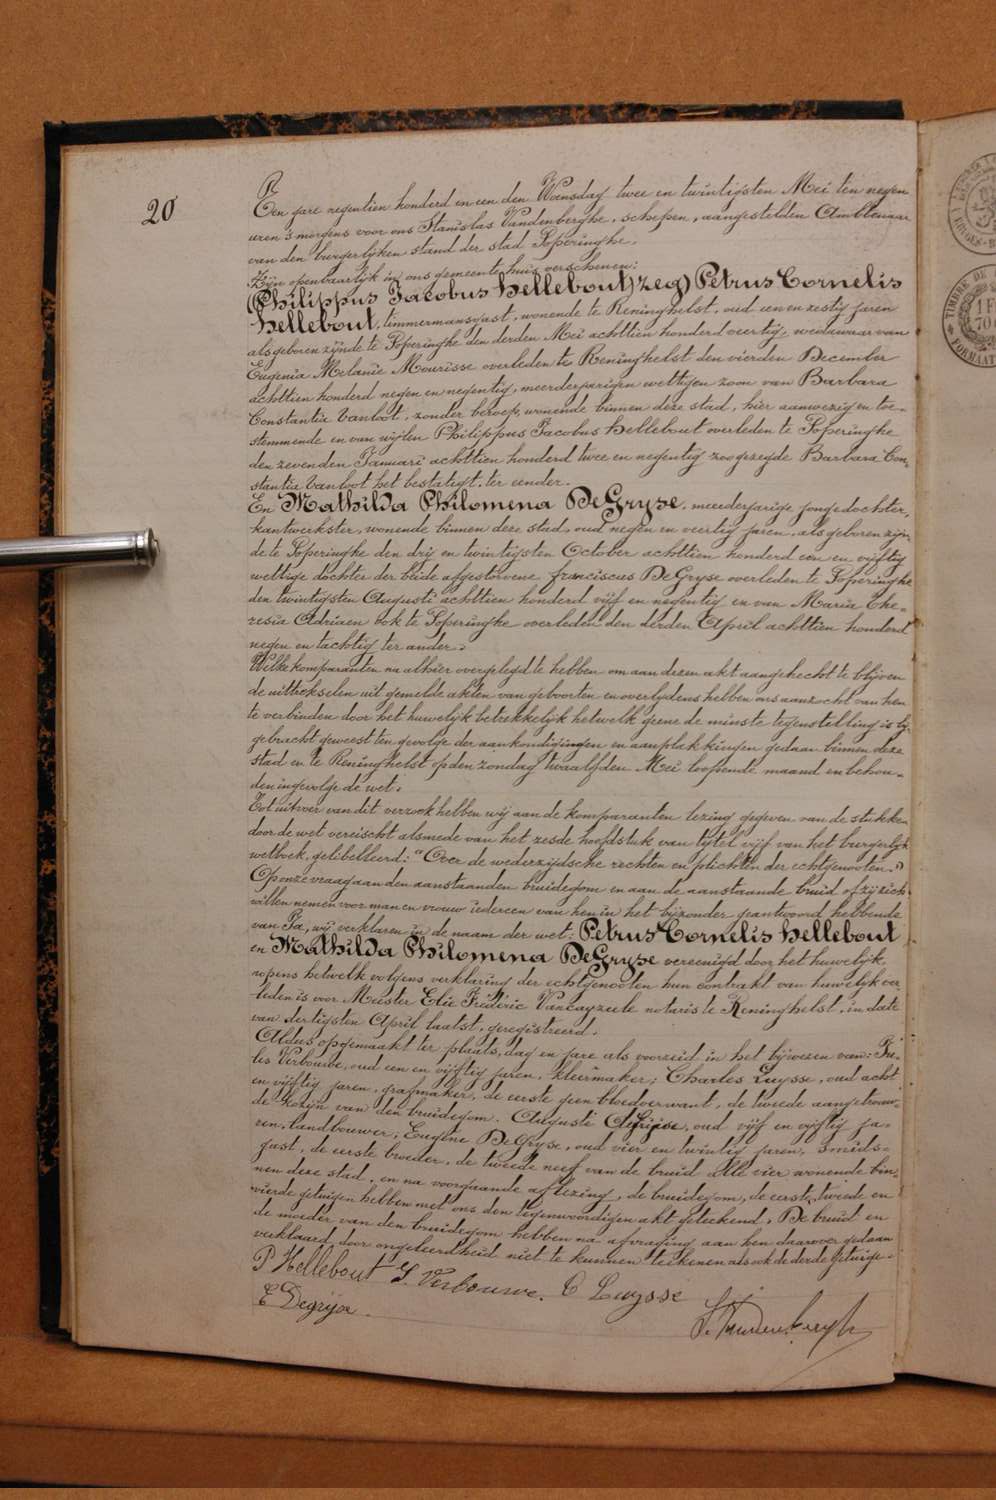 20
Een jare negentien honderd en een den Woensdag twee en twintigsten Mei ten negen
uren 's morgens voor ons Stanislas Vandenberghe, schepen, aangestelden Ambtenaar
van den burgerlijken stand der stad Poperinghe.
Zijn openbaarlijk in ons gemeentehuis verschenen:
(Philippus Jacobus Hellebout) zeg) Petrus Cornelis
Hellebout, timmermansgast, wonende te Reninghelst, oud een en zestig jaren
als geboren zijnde te Poperinghe den derden Mei achttien honderd veertig, weduwaar van
Eugenia Melanie Mourisse overleden te Reninghelst den vierden December
achttien honderd negen en negentig, meerderjarigen wettigen zoon van Barbara
Constantia Vanloot, zonder beroep, wonende binnen deze stad, hier aanwezig en toe-
stemmende en van wijlen Philippus Jacobus Hellebout overleden te Poperinghe
den zevenden Januari achttien honderd twee en negentig zoo gezegde Barbara Con-
stantia Vanloot het bestatigt, ter eender.
En Mathilda Philomena DeGryse, meerderjarige jongedochter,
kantwerkster, wonende binnen deze stad, oud negen en veertig jaren, als geboren zijn-
de te Poperinghe den drij en twintigsten October achttien honderd een en vijftig
wettige dochter der beide afgestorvene franciscus DeGryse overleden te Poperinghe
den twintigsten Augusti achttien honderd vijf en negentig en van Maria The-
resia Adriaen ook te Poperinghe overleden den derden April achttien honderd
negen en tachtig ter ander.
Welke komparanten na alhier overgelegd te hebben om aan dezen akt aangehecht te blijven
de uittrekselen uit gemelde akten van geboorten en overlydens hebben ons aanzocht van hen
te verbinden door het huwelijk betrekkelijk hetwelk geene de minste tegenstelling is by-
gebracht geweest ten gevolge der aankondigingen en aanplakkingen gedaan binnen deze
stad en te Reninghelst op den zondag twaalfden Mei loopende maand en behou-
den ingevolge de wet.
Tot uitvoer van dit verzoek hebben wij aan de komparanten lezing gegeven van de stukken
door de wet vereischt alsmede van het zesde hoofdstuk van tytel vijf van het burgerlijk
wetboek, gelibelleerd: "Over de wederzijdsche rechten en plichten der echtgenooten."
Op onze vraag aan den aanstaanden bruidegom en aan de aanstaande bruid of zij zich
willen nemen voor man en vrouw iedereen van hen in het bijzonder geantwoord hebbende
van Ja, wij verklaren in de naam der wet: Petrus Cornelis Hellebout
en Mathilda Philomena DeGryse vereenigd door het huwelijk,
nopens hetwelk volgens verklaring der echtgenooten hun contrakt van huwelyk ver-
leden is voor Meester Elie Frédéric Vancayzeele notaris te Reninghelst, in date
van dertigsten April laatst, geregistreerd.
Aldus opgemaakt ter plaats, dag en jare als voorzeid in het bijwezen van: Ju-
les Verbouwe, oud een en vijftig jaren, kleermaker; Charles Luysse, oud acht
en vijftig jaren, grafmaker, de eerste geen bloedverwant, de tweede aangetrouw-
de kozijn van den bruidegom. Augusti DeGrijse, oud vijf en vijftig ja-
ren, landbouwer; Eugène DeGryse, oud vier en twintig jaren, smids-
gast, de eerste broeder, de tweede neef van de bruid alle vier wonende bin-
nen deze stad, en na voorgaande aflezing, de bruidegom, de eerste, tweede en
vierde getuigen hebben met ons den tegenwoordigen akt geteekend. De bruid en
de moeder van den bruidegom hebben na afvraging aan hen daarover gedaan
verklaard door ongeleerdheid niet te kunnen teekenen alsook de derde getuige.
P Hellebout J. Verbouwe. C Luysse
E Degrijse
S. Vandenberghe